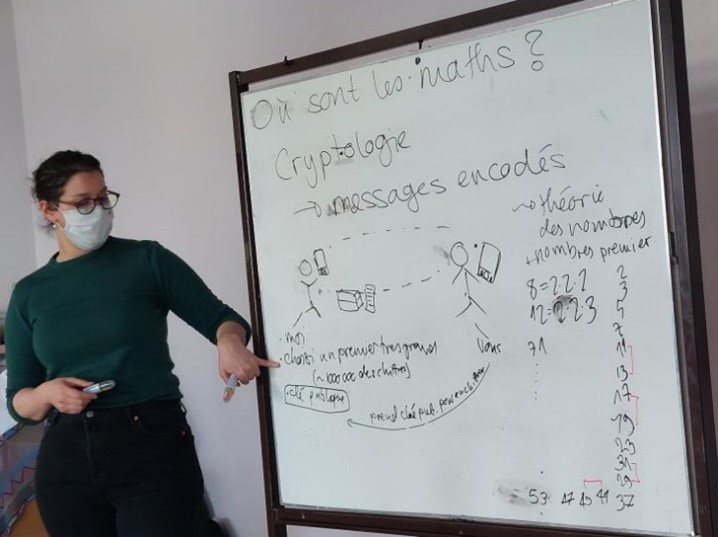 Où sont les maths ?
Cryptologie
→ messages encodés
→ théorie
des nombres
nombres premier
8=2·2·2
12=2·2·3
71
· moi
· choisi un premier très grand
· clé publique
Vous
prend clé pub. pour
2
3
5
7
11
13
17
19
23
31
29
37
53 47 43 41